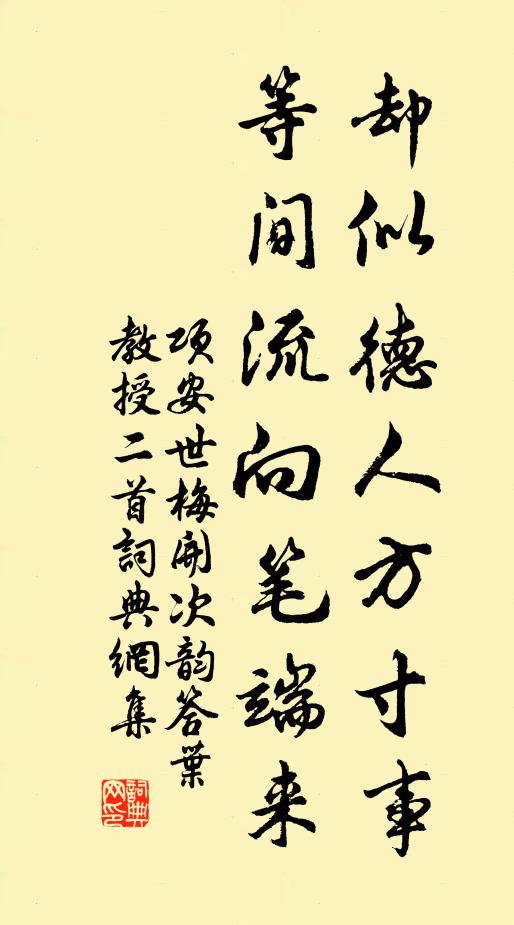 却似德人方寸事
等闲流向笔端来
项安世梅開次韵答葉
教授二首詞典網集
詞典网印